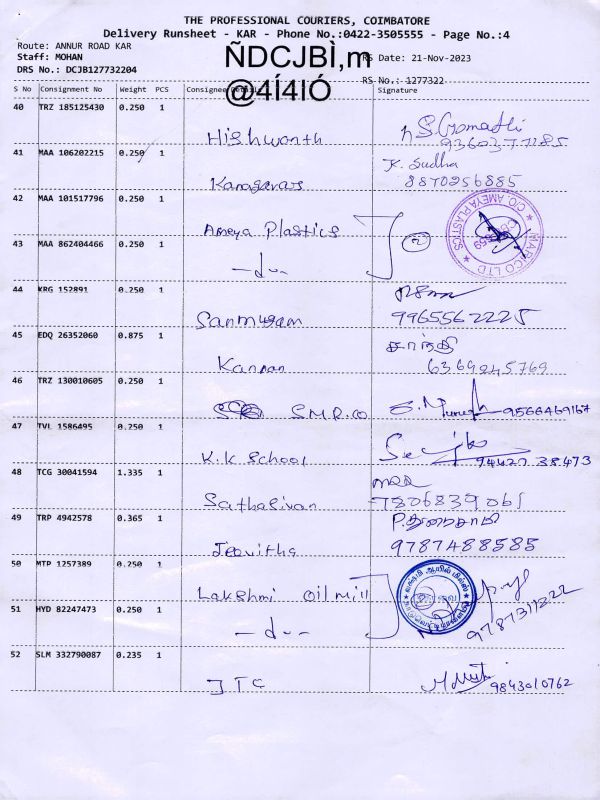 THE PROFESSIONAL COURIERS, COIMBATORE
Delivery Runsheet - KAR - Phone No.:0422-3505555 - Page No.:4
Route: ANNUR ROAD KAR
Staff: MOHAN
RS Date: 21-Nov-2023
DRS No.: DCJB127732204
ÑDCJBÌ,m
@4Í4IÓ
RS No.: 1277322
S No Consignment No Weight PCS Consignee Details Signature
40 TRZ 185125430 0.250 1
Hishwanth
41 MAA 106202215 0.250 1
K. Sudha
8870256885
42 MAA 101517796 0.250 1
Ameya Plastics
2
MARICO LTD
C/O. AMEYA PLASTICS
43 MAA 862404466 0.250 1
-do-
44 KRG 152891 0.250 1
Sanmugam
9965562225
45 EDQ 26352060 0.875 1
Kannan
சாந்தி
6369245769
46 TRZ 130010605 0.250 1
S.M.R.CO
9566469167
47 TVL 1586495 0.250 1
K.K School
94427 38473
48 TCG 30041594 1.335 1
Sathasivan
7806839061
49 TRP 4942578 0.365 1
Jeevitha
P.துரைசாமி
9787488585
50 MTP 1257389 0.250 1
Lakshmi Oil mill
51 HYD 82247473 0.250 1
-do-
9787311222
52 SLM 332790087 0.235 1
JTC
9843010762